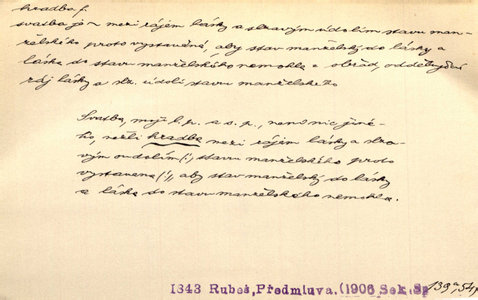 hradba f.
svatba jo ~ mezi rájem lásky a slzavým údolím stavu man-
želského proto vystavěná, aby stav manželský do lásky a
láska do stavu manželského nemohla = obřad, oddělující
ráj lásky a slz. údolí stavu manželského
Svatba, moji k. p. a s. p., není nic jiné-
ho, nežli hradba mezi rájem lásky a slza-
vým oudolím (!) stavu manželského proto
vystavena (!), aby stav manželský do lásky
a láska do stavu manželského nemohla.
1843 Rubeš, Předmluva. (1906, Sek. Sp
139ª, 54)